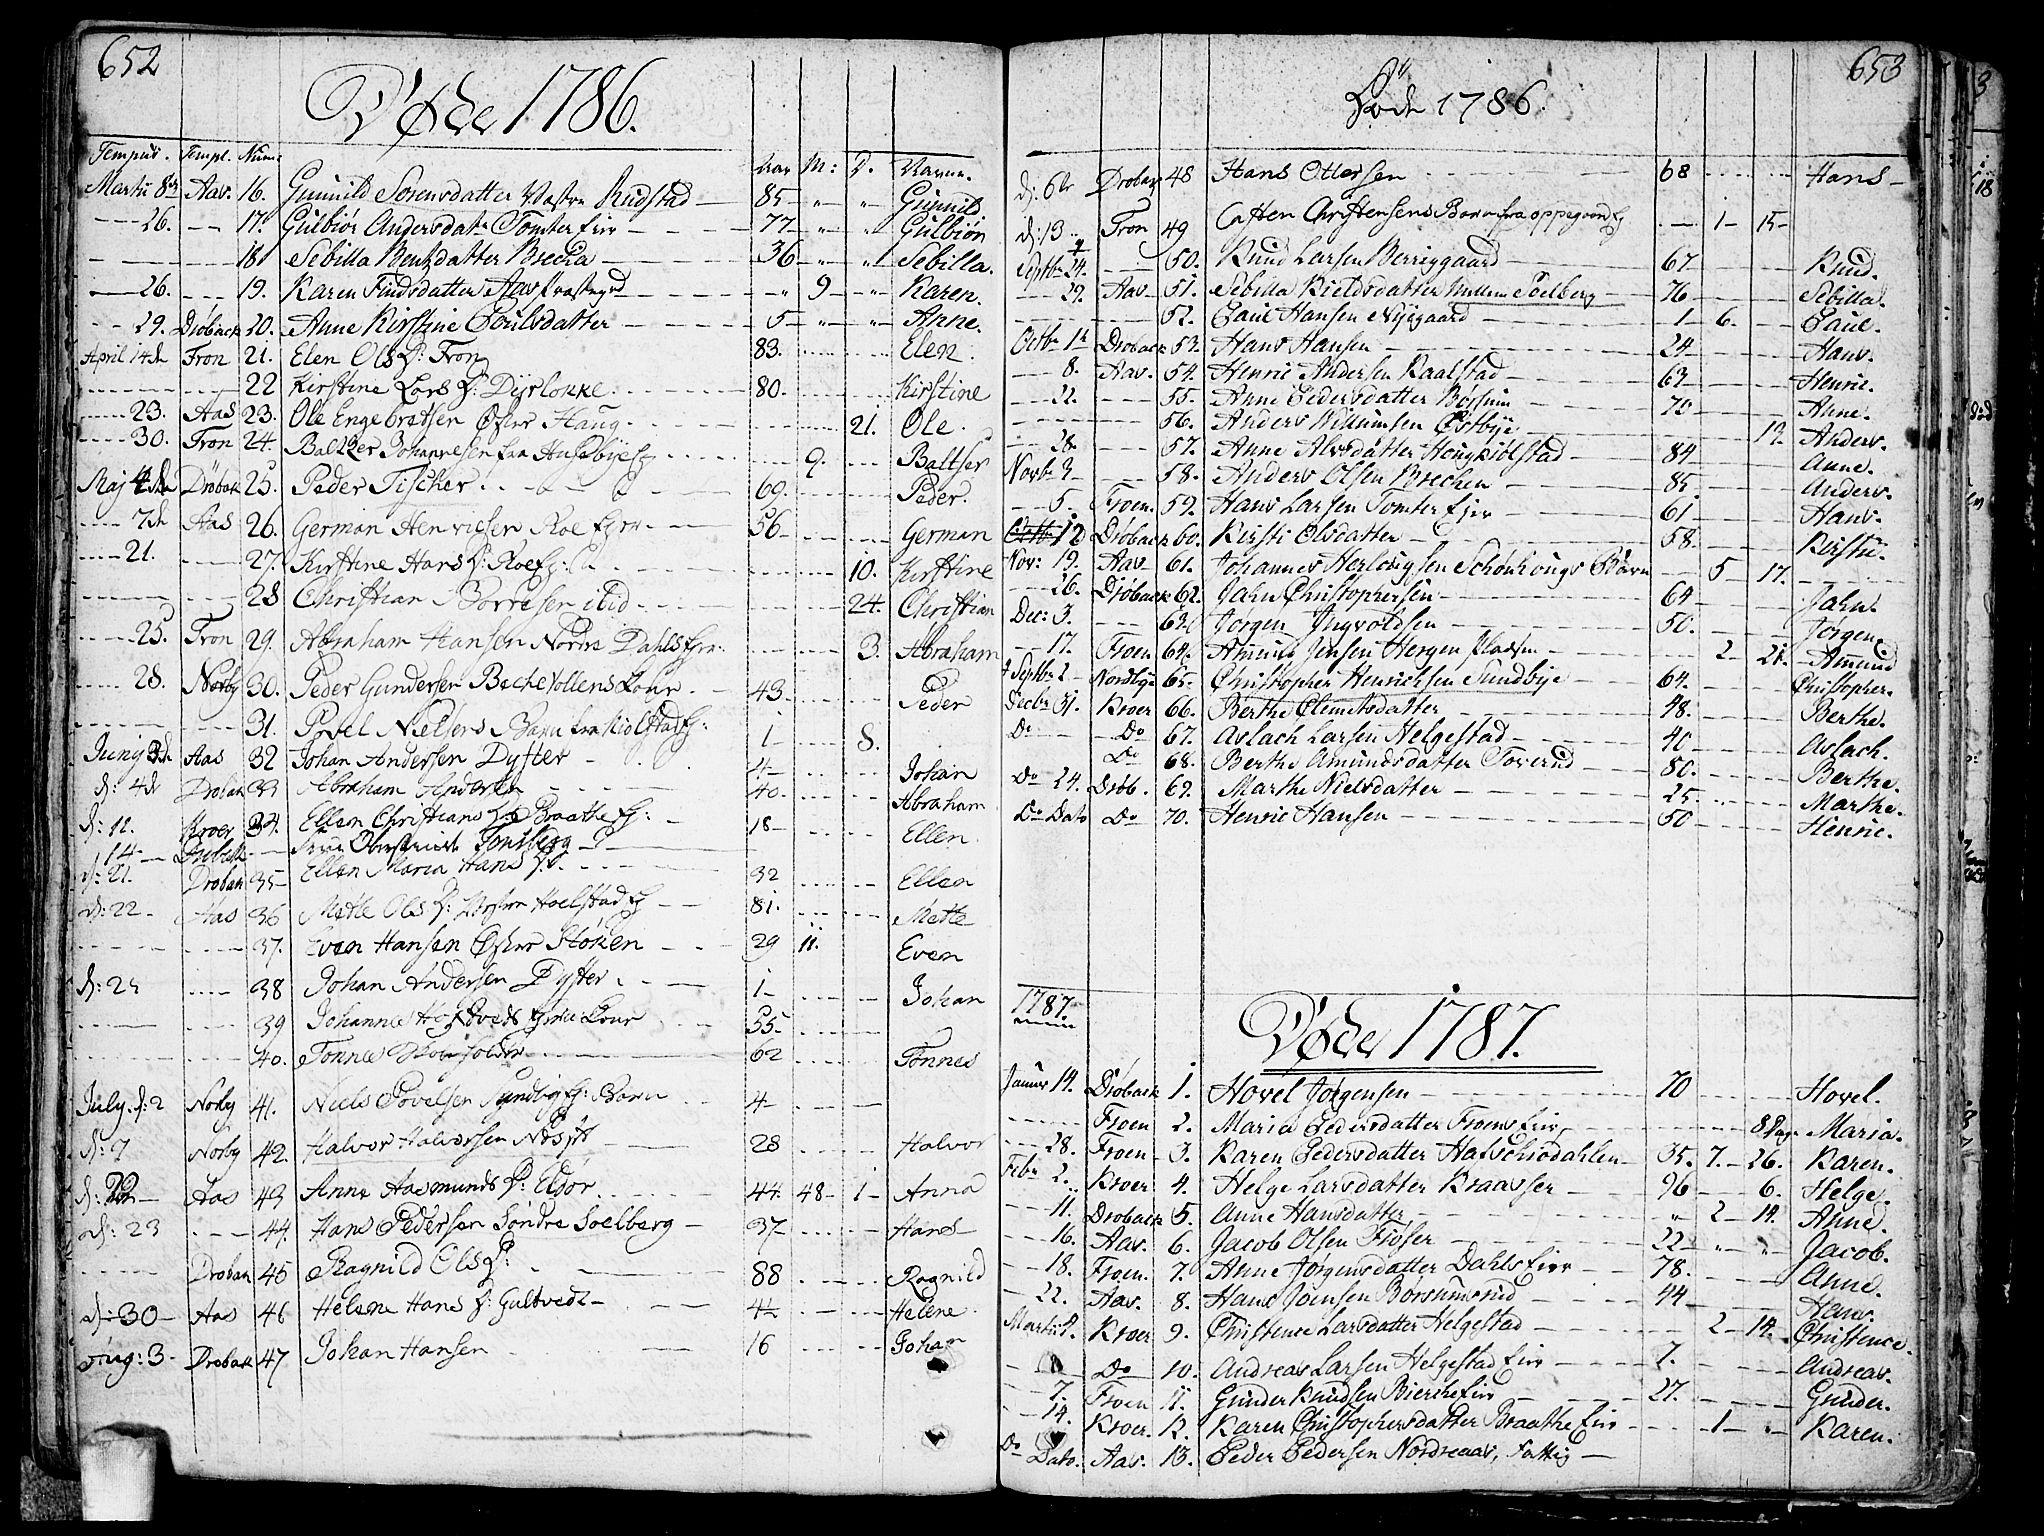 652
Døde 1786.
Tempus. Templ. Num: Aar M: D. Navne.
Martii 8de Aas. 16. Gunnild Sorensdatter Vestre Rudstad 85 - " - " Gunnild
26. 17. Gulbiør Andersdatr Tomter Eier 77 - " - " Gulbiør
18 Sebilla Bentzdatter Brecka 36 - " - " Sebilla.
26. 19. Karen Findsdatter Aas Præstegrd " 9 - " Karen.
29. Drøback 20. Anne Kirstine Poulsdatter 5 - " - " Anne.
April 14de Fron 21. Elen Ols D: Fron 83. Elen.
22 Kirstine Lars D: Dyrløkke. 80. Kirstine
23. Aas 23. Ole Engebretsen Østre Haug 21. Ole.
30. Fron 24. Baltzer Johannesen fra Husebye Ey 9. Baltser
Maj 4de Drøbak 25. Peder Fischer. 69. Peder.
7de Aas 26. German Henricsen Roe Eyer 56 German
21. 27. Kirstine Hans D: Roe Ey: 10. Kirstine
28 Christian Borresen ibid 24. Christian
25. Fron 29. Abraham Hansen Norre Dahls Eyer 3. Abraham
28. Norby 30. Peder Gundersen Bache Vollens Logr 43 Peder
31. Povel Nielsens Barn fra Kiølstad Ey: 1 8.
Junij 3de Aas 32 Johan Andersen Dyster 4 Johan
d: 4de Drobak 33 Abraham Anders 40. Abraham
d: 12. Kroer 34. Ellen Christians D: Braathe Ey: 18 Ellen
14 Drobak Tonsberg
d: 21. Drobak 35 Ellen Maria Hans D: 32 Ellen
d: 22 Aas 36 Mette Ols D: Vestre Hoelstad Ey 81. Mette
37. Even Hansen Østre Støken 29 11. Even
d: 25 38 Johan Andersen Dyster 1 Johan
39 Johanne Hogdvedt 55
40. Tonnes 62 Tønnes
July. d: 2 Norby 41. Niels Povelsen Sundby Ey: Barn 4
d: 9 Norby 42. Halvor Halvorsen Nesset 28 Halvor
d: 22 Aas 43 Anne Aasmunds D: Eldor 44. 48 1 Anna
d: 23 44. Hans Pedersen Søndre Soelberg 37 Hans
Drobak 45 Ragnild Ols D: 88 Ragnild
d: 30 Aas 46 Helene Hans D: Gultvedt 42 Helene
Aug: 3 Drobak 47 Johan Hansen 16 Johan
653
Døde 1786.
d: 6te Drobak 48 Hans Ottersen 68 Hans
d: 13. Fron 49 Otter Christensens Barn fra oppegaard Ey 1 15
Septbr 24. 50. Knud Larsen Berriggaard 67 Knud.
29. Aas 51. Sebilla Kieldsdatter Mellem Soelberg 76 Sebilla.
52. Paul Hansen Nygaard 1 6. Paul.
Octbr 1te Drøback 53. Hans Hansen 24 Hans.
8. Aas. 54. Henric Andersen Kaalstad 63 Henric.
22. 55. Anne Pedersdatter Børsum 70 Anne.
56. Anders Willumsen Østbye 19. Anders.
28 57. Anne Alvsdatter Hongkiølstad 84 Anne.
Novb 3 58. Anders Olsen Brechen 85. Anders.
5. Froen. 59. Hans Larsen Tomter Eier 61 Hans.
12 Drøback 60. Kirsti Olsdatter 58. Kirsti.
Nov: 19. Aas 61. Johannes Herlosigsen Schonhougs Barn 5 17.
26. Drøback 62. Jahn Christophersen 64 Jahn.
Dec: 3. 63. Jørgen Ingvoldsen 50. Jørgen.
17. Froen 64. Amund Jensen Hergen Pladsen 2 21. Amund
Septbr 2 Nordbye 65. Christopher Henrichsen Sundbye 64. Christopher.
Decbr 31. Kroer 66. Berthe Clemetsdatter 48. Berthe.
Do Do 67. Aslach Larsen Helgestad 40 Aslach.
Do 68. Berthe Amundsdatter Toverud 80. Berthe.
Do 24. Drøb. 69. Marthe Nielsdatter 25. Marthe.
Do Dato Do 70. Henric Hansen 50 Henric.
1787.
Døde 1787.
Januar 14. Drøback 1. Hovel Jørgensen 70 Hovel.
Froen 2. Maria Pedersdatter Froens Eier 8 Dag. Maria.
28. Froen 3. Karen Pedersdatter Hafschiødahlen 35. 7. 26. Karen.
Febr 2. Kroer 4. Helge Larsdatter Kraasser 96 6. Helge.
11. Drøback 5. Anne Hansdatter " 2 14. Anne.
16. Aas. 6. Jacob Olsen Fiøser 22 " " Jacob.
18. Froen. 7. Anne Jørgensdatter Dahls Eier 78. Anne.
22. Aas. 8. Hans Joensen Børsumsrud 44 Hans.
Martii Kroer 9. Christence Larsdatter Helgestad 2 14. Christence.
Do 10. Andreas Larsen Helgestad Eier 7. Andreas.
7. Froen 11. Gunder Knudsen Bierche Eier 27. Gunder.
14. Kroer. 12. Karen Christophersdatter Braathe Eier 1 Karen.
Do Dato. Aas. 13. Peder Pedersen Nordreaas, Fattig